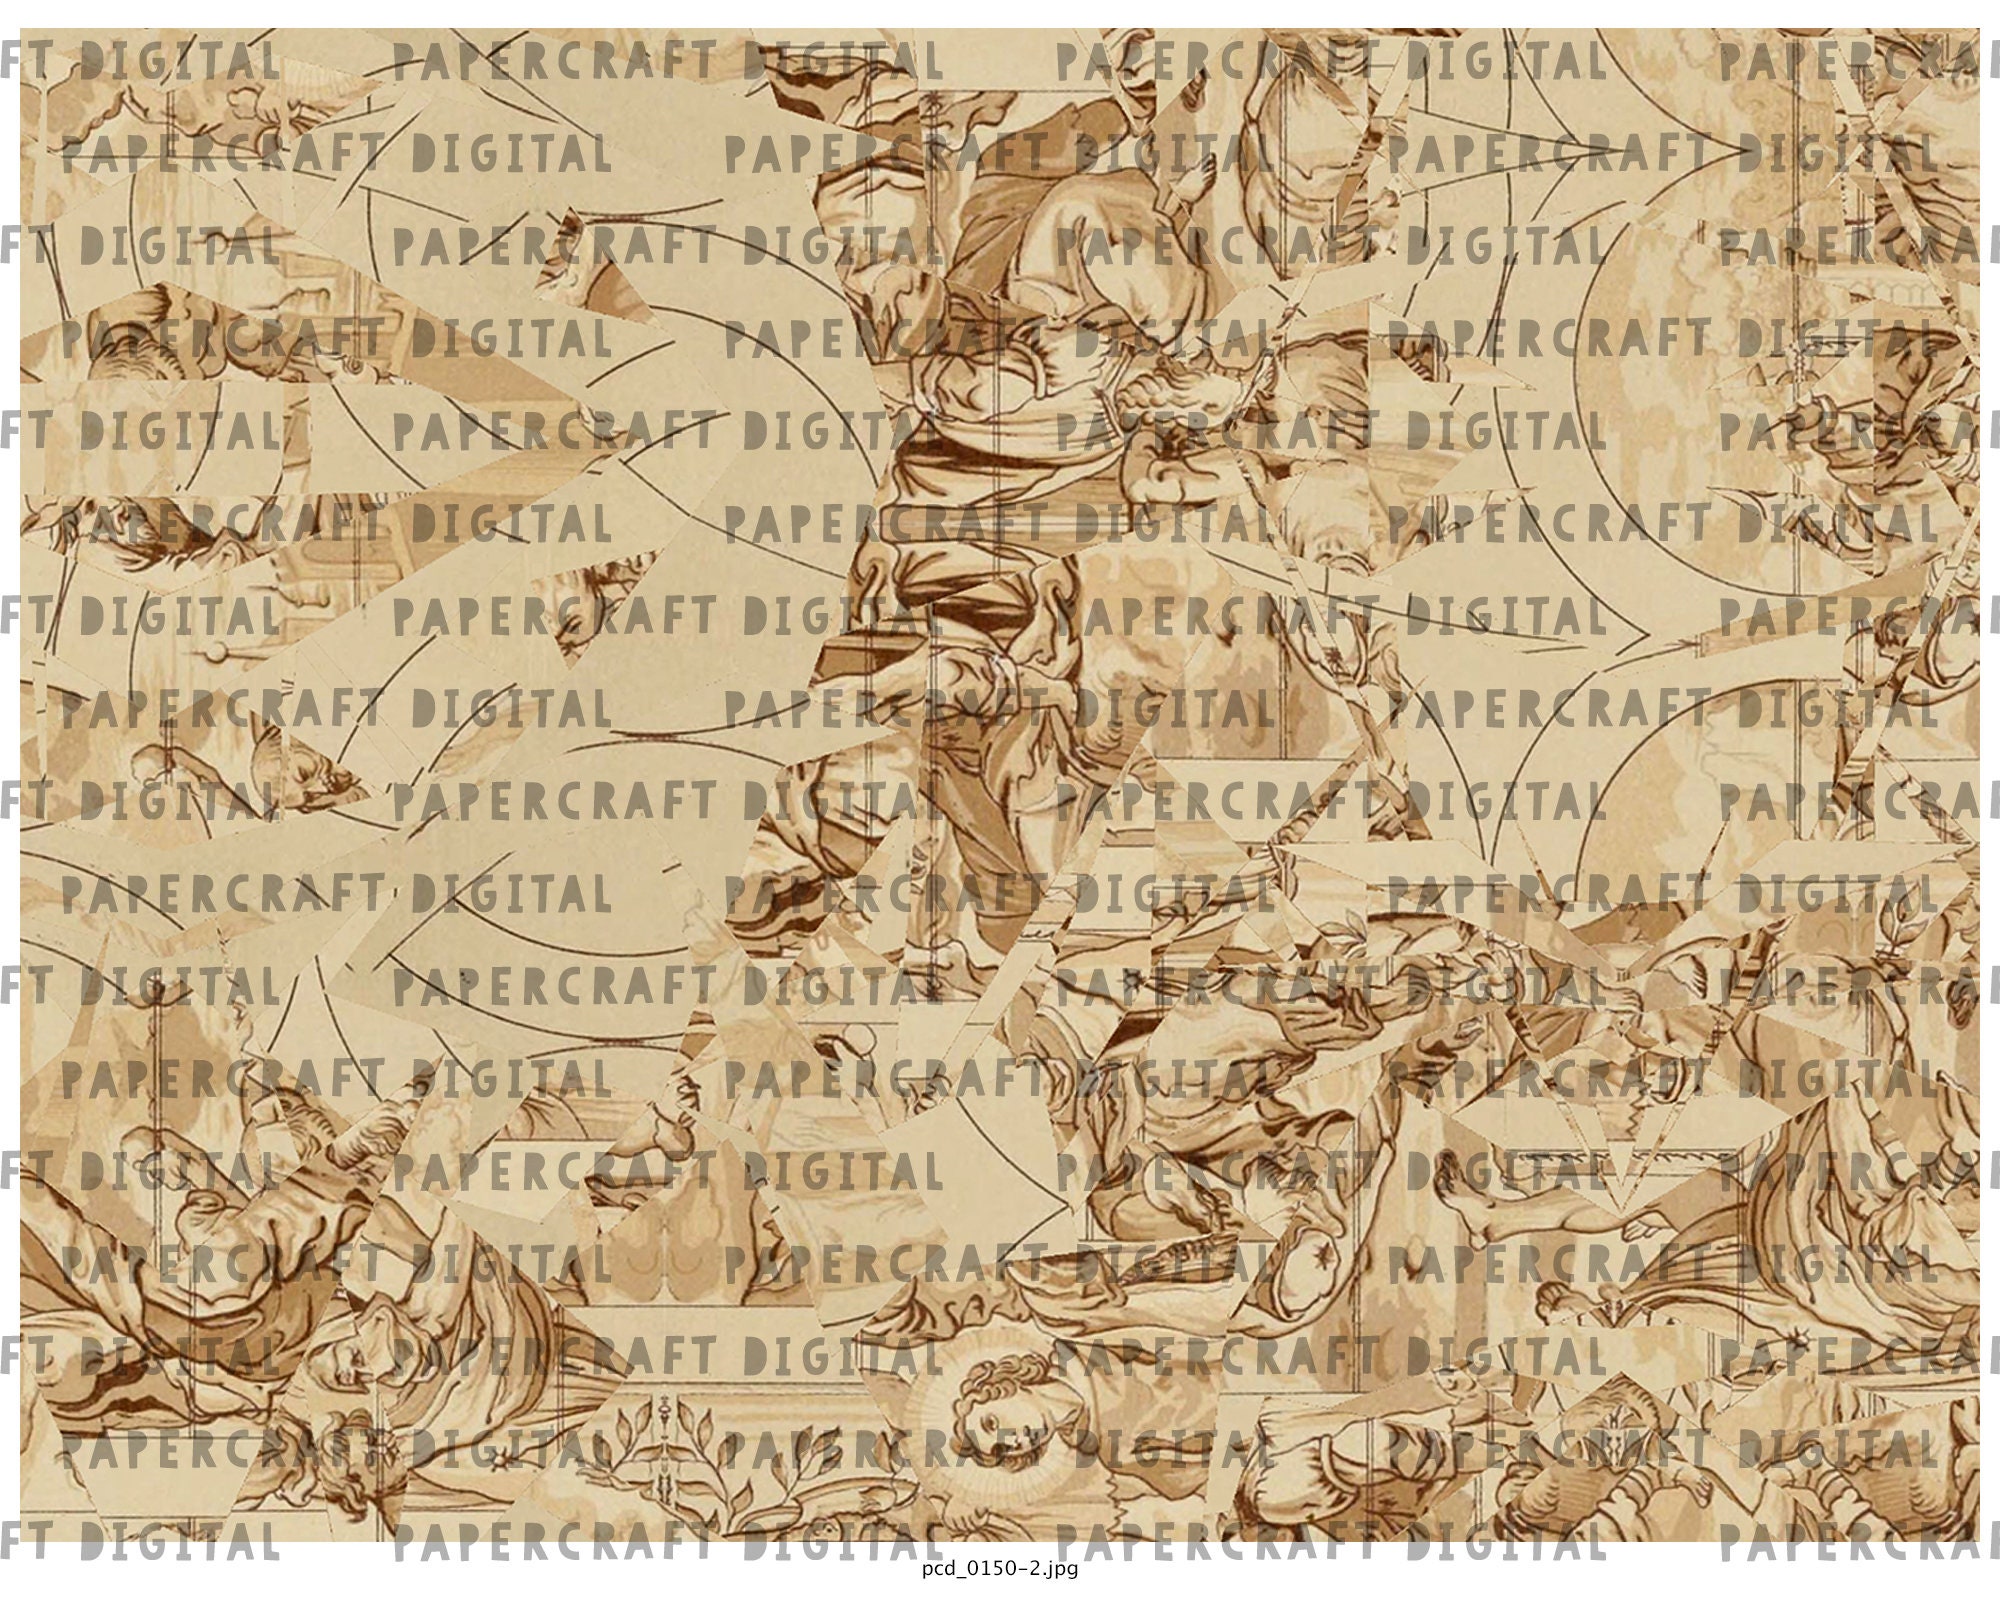 FT DIGITAL PAPERCRAFT DIGITAL PAPERCRAFT DIGITAL PAPERCRA
PAPERCRAFT DIGITAL PAPERCRAFT DIGITAL PAPERCRAFT DIGITAL
FT DIGITAL PAPERCRAFT DIGITAL PAPERCRAFT DIGITAL PAPERCRAF
PAPERCRAFT DIGITAL PAPERCRAFT DIGITAL PAPERCRAFT DIGITAL
FT DIGITAL PAPERCRAFT DIGITAL PAPERCRAFT DIGITAL PAPERCRAF
PAPERCRAFT DIGITAL PAPERCRAFT DIGITAL PAPERCRAFT DIGITAL
FT DIGITAL PAPERCRAFT DIGITAL PAPERCRAFT DIGITAL PAPERCRAF
PAPERCRAFT DIGITAL PAPERCRAFT DIGITAL PAPERCRAFT DIGITAL
FT DIGITAL PAPERCRAFT DIGITAL PAPERCRAFT DIGITAL PAPERCRAF
PAPERCRAFT DIGITAL PAPERCRAFT DIGITAL PAPERCRAFT DIGITAL
FT DIGITAL PAPERCRAFT DIGITAL PAPERCRAFT DIGITAL PAPERCRAF
PAPERCRAFT DIGITAL PAPERCRAFT DIGITAL PAPERCRAFT DIGITAL
FT DIGITAL PAPERCRAFT DIGITAL PAPERCRAFT DIGITAL PAPERCRAF
PAPERCRAFT DIGITAL PAPERCRAFT DIGITAL PAPERCRAFT DIGITAL
FT DIGITAL PAPERCRAFT DIGITAL PAPERCRAFT DIGITAL PAPERCRAF
PAPERCRAFT DIGITAL PAPERCRAFT DIGITAL PAPERCRAFT DIGITAL
FT DIGITAL PAPERCRAFT DIGITAL PAPERCRAFT DIGITAL PAPERCRAF
pcd_0150-2.jpg